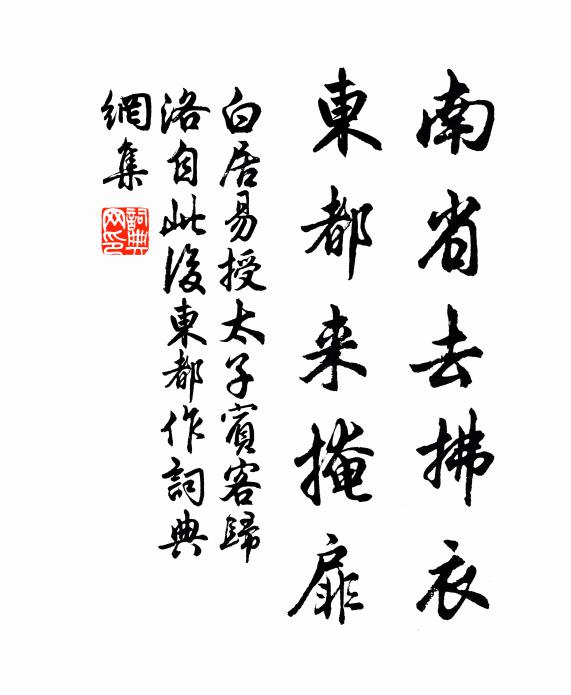 南省去拂衣
東都来掩扉
白居易授太子賓客歸
洛自此後東都作詞典
網集
詞典網印